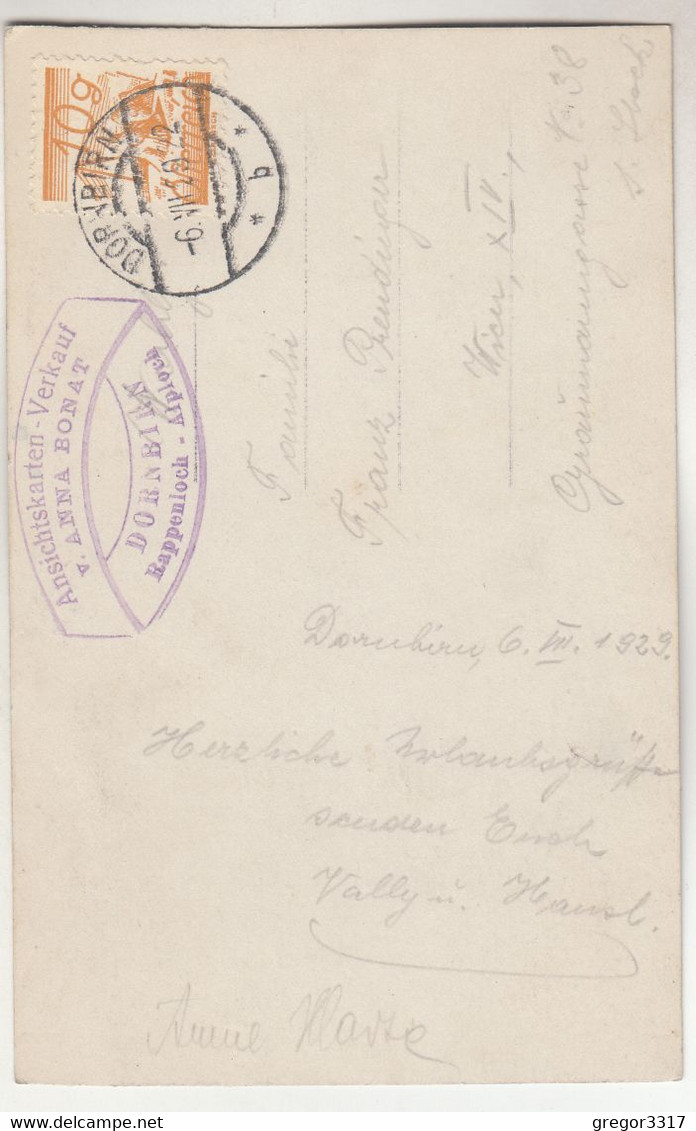 10g
Österreich
DORNBIRN
-6.VIII.29.12
* b *
Ansichtskarten-Verkauf
v. ANNA BONAT
DORNBIRN
Rappenloch - Alploch
Familie
Franz
Wien, XIV.,
38
Dornbirn, 6. VIII. 1929.
Herzliche Urlaubsgrüße
senden Euch
Vally u. Hansl.
© gregor3317